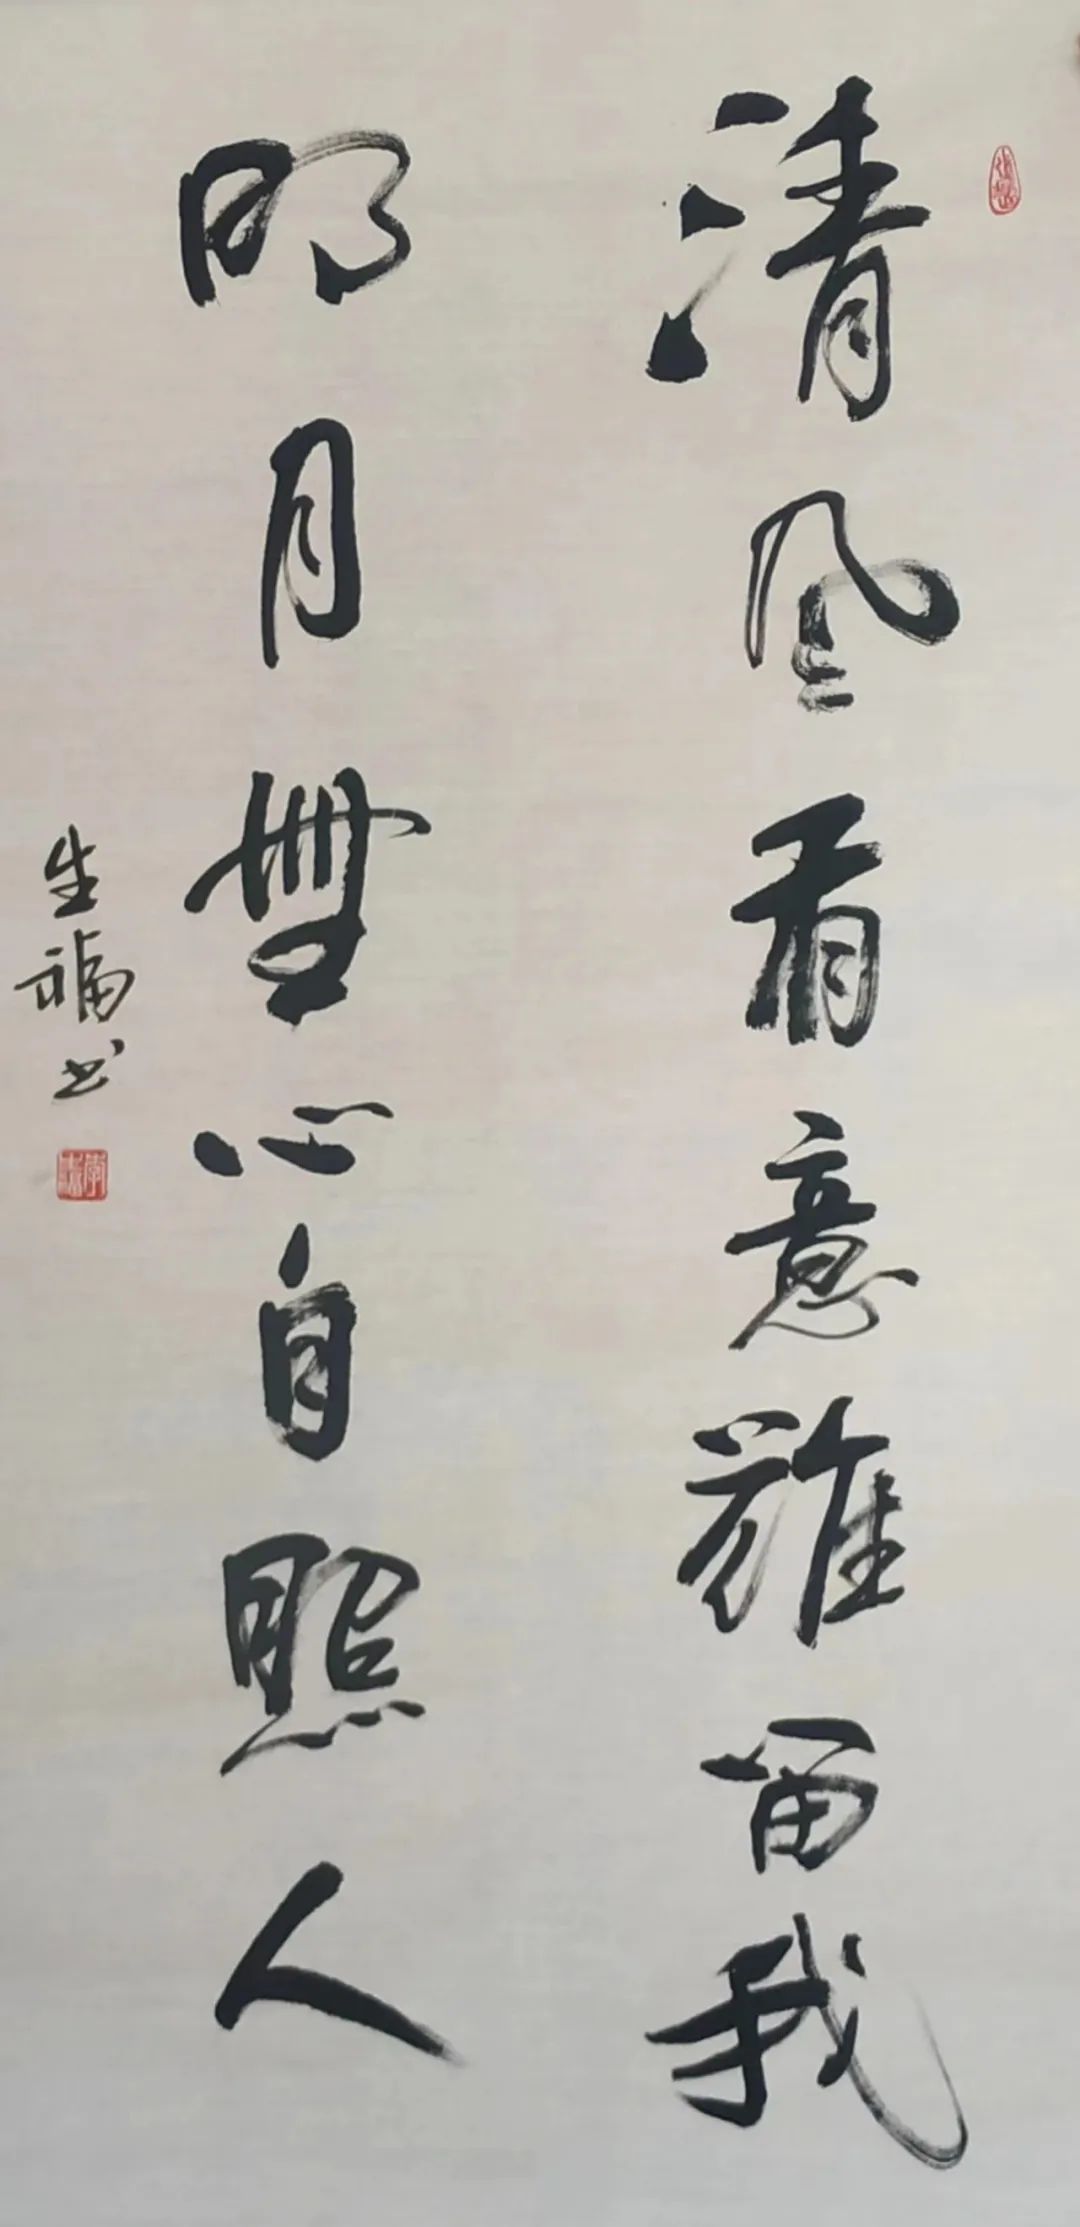 清风有意難留我
明月無心自照人
生福书